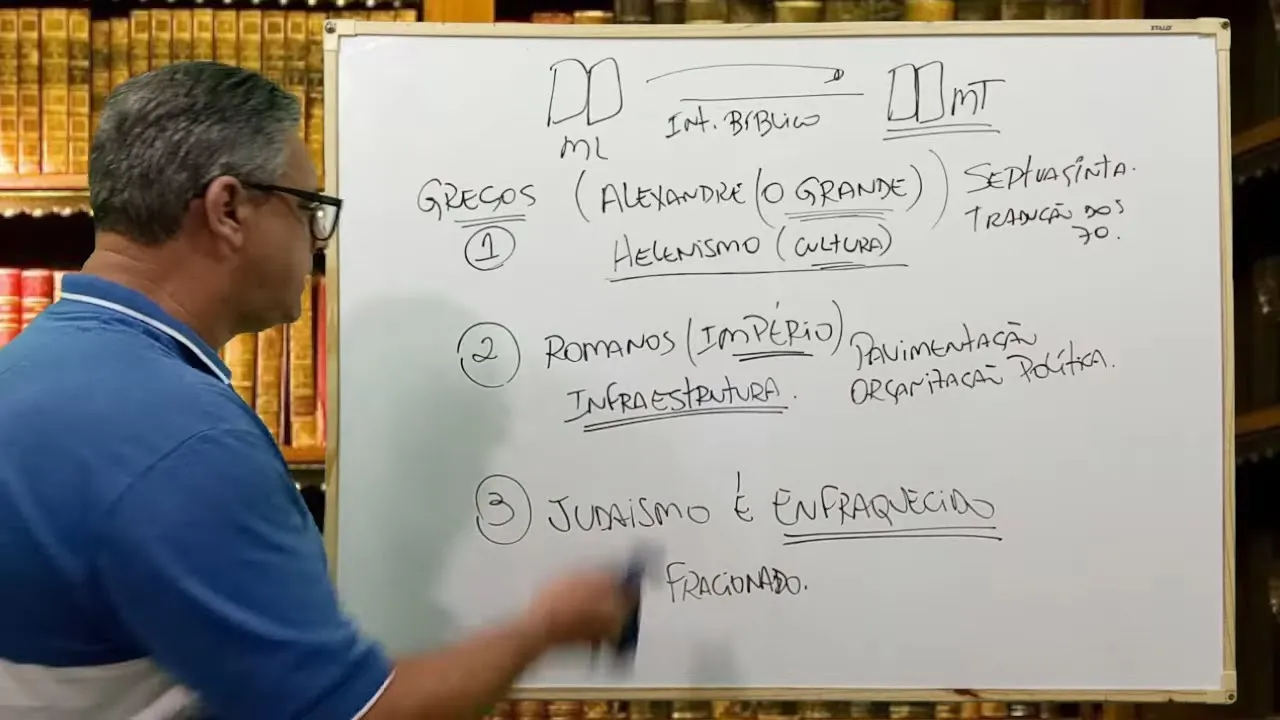 ML
INT. BÍBLICO
MT
GREGOS (ALEXANDRE (O GRANDE))
1
HELENISMO (CULTURA)
SEPTUAGINTA.
TRADUÇÃO DOS
70.
2 ROMANOS (IMPÉRIO)
INFRAESTRUTURA.
PAVIMENTAÇÃO
ORGANIZAÇÃO POLÍTICA.
3 JUDAISMO É ENFRAQUECIDO
FRACIONADO.